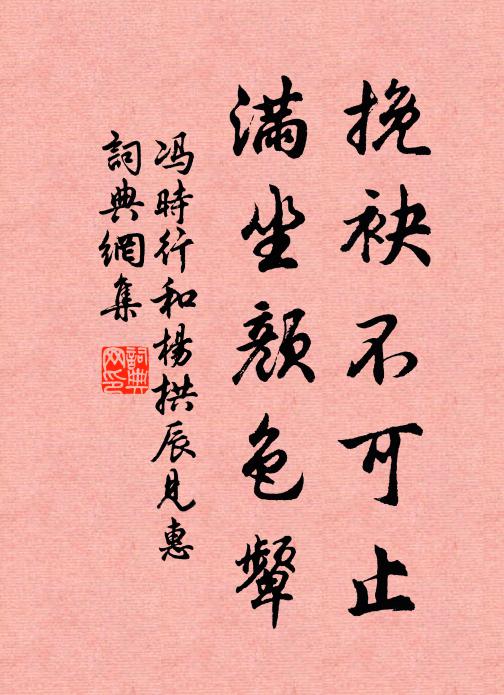 挽袂不可止
满坐颜色颦
冯時行和楊拱辰見惠
詞典網集
詞典网印